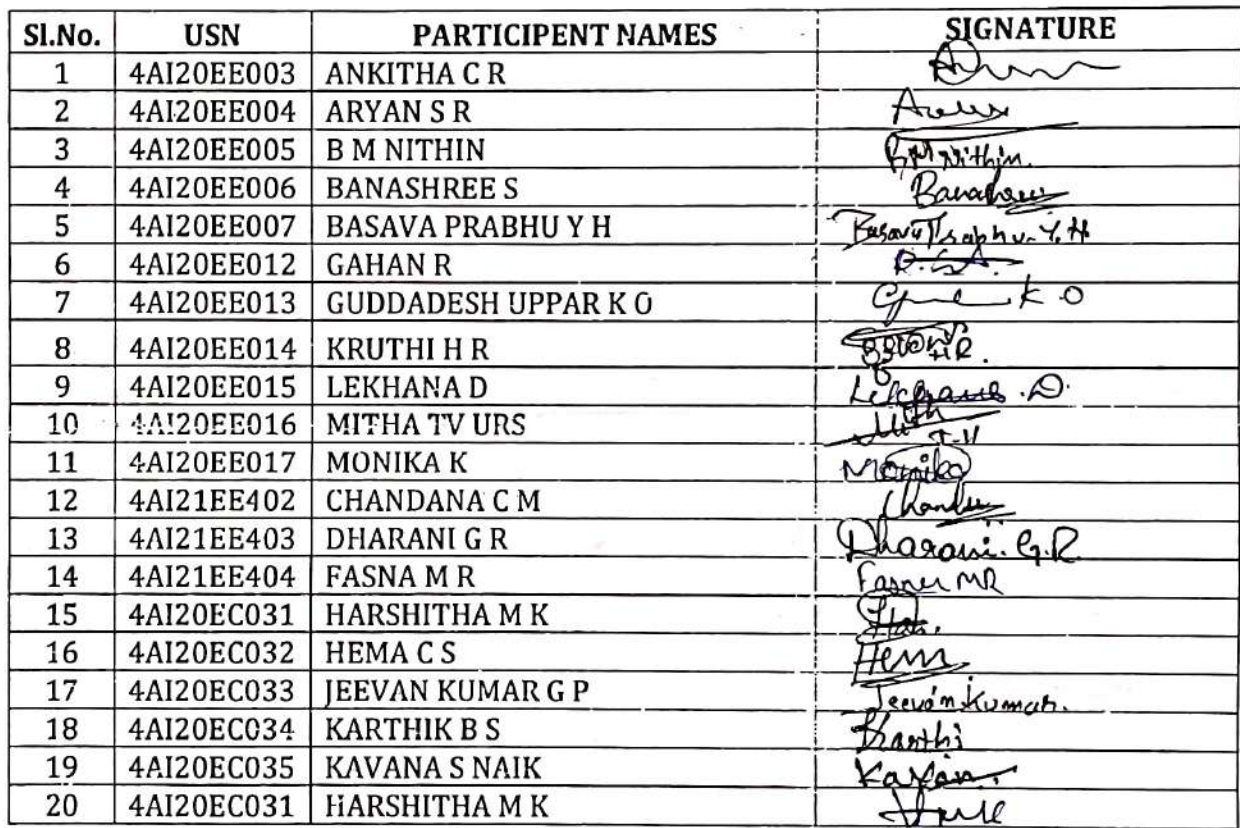 Sl.No. USN PARTICIPENT NAMES SIGNATURE
1 4AI20EE003 ANKITHA C R
2 4AI20EE004 ARYAN S R
3 4AI20EE005 B M NITHIN B M Nithin.
4 4AI20EE006 BANASHREE S
5 4AI20EE007 BASAVA PRABHU Y H Basava Prabhu. Y. H.
6 4AI20EE012 GAHAN R
7 4AI20EE013 GUDDADESH UPPAR K O K O
8 4AI20EE014 KRUTHI H R HR.
9 4AI20EE015 LEKHANA D Lekhana .D.
10 4AI20EE016 MITHA TV URS Mith T-V
11 4AI20EE017 MONIKA K Monika
12 4AI21EE402 CHANDANA C M
13 4AI21EE403 DHARANI G R Dharani. G.R
14 4AI21EE404 FASNA M R Fasna MR
15 4AI20EC031 HARSHITHA M K
16 4AI20EC032 HEMA C S
17 4AI20EC033 JEEVAN KUMAR G P Jeevan Kumar.
18 4AI20EC034 KARTHIK B S Karthi
19 4AI20EC035 KAVANA S NAIK
20 4AI20EC031 HARSHITHA M K